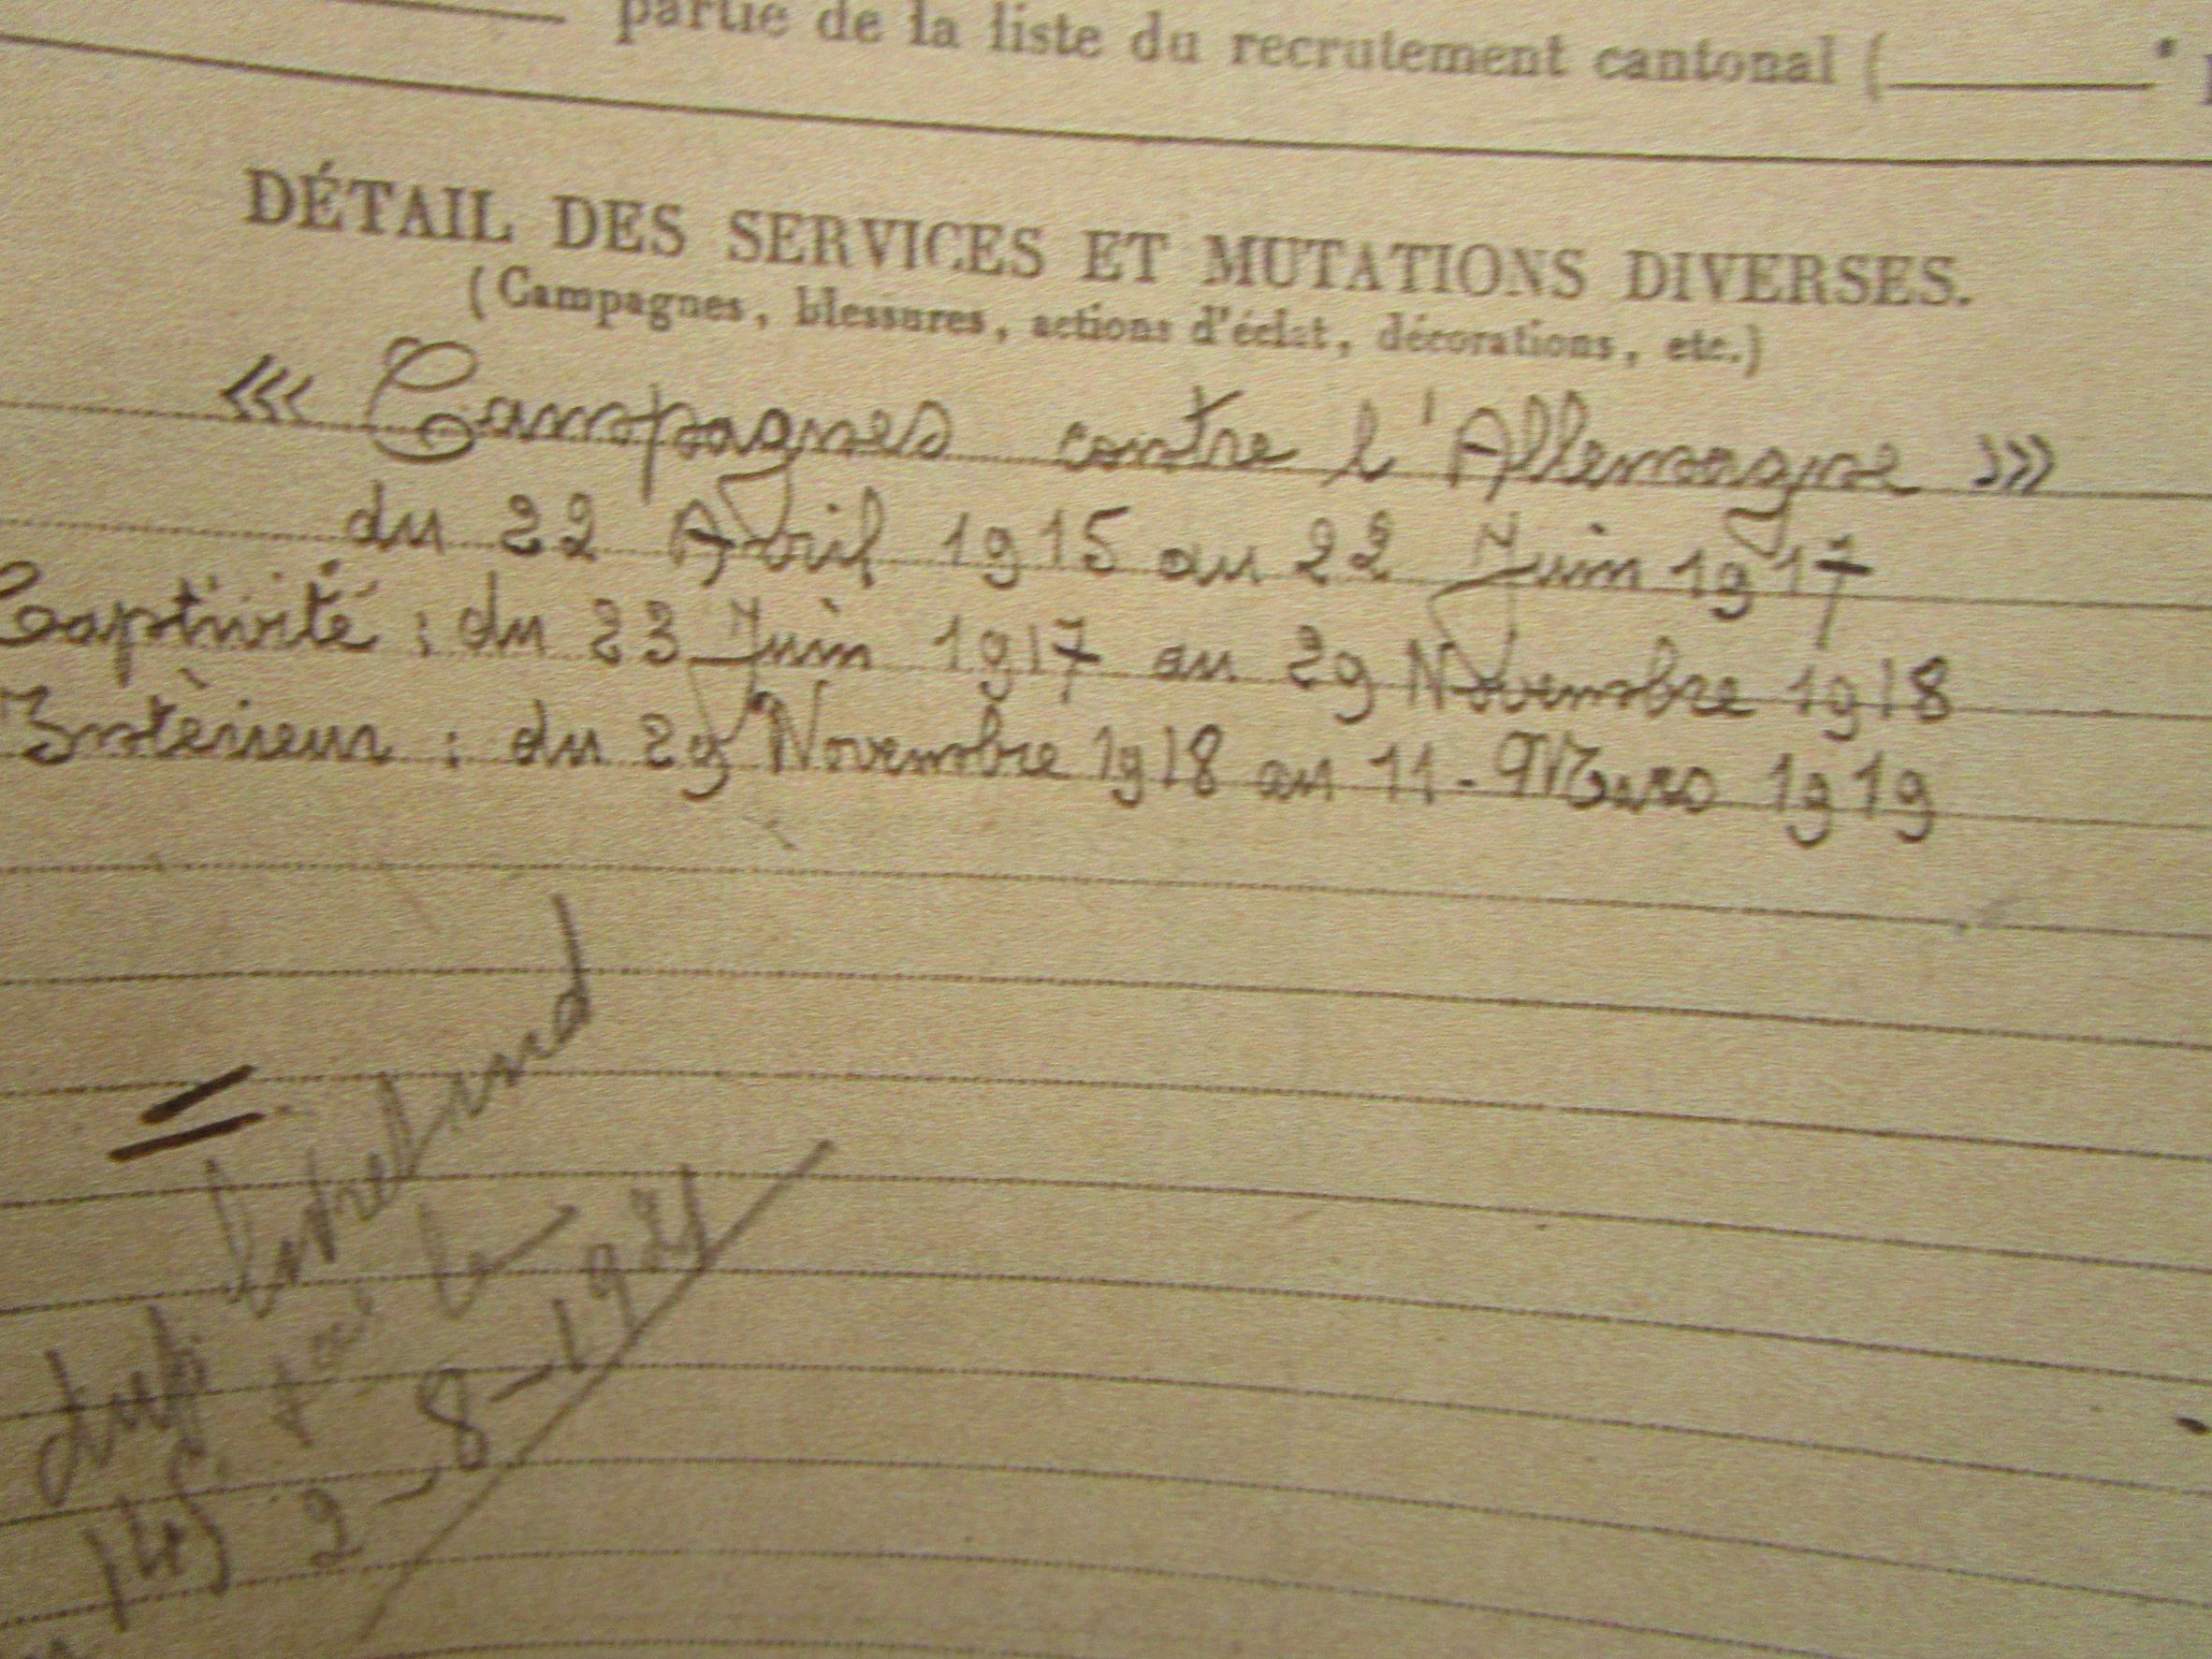 partie de la liste du recrutement cantonal (
DÉTAIL DES SERVICES ET MUTATIONS DIVERSES.
(Campagnes, blessures, actions d'éclat, décorations, etc.)
<<< Campagnes contre l'Allemagne >>>
du 22 Avril 1915 au 22 Juin 1917
Captivité : du 23 Juin 1917 au 29 Novembre 1918
Intèrieur : du 29 Novembre 1918 au 11 - Mars 1919
dup livret ind
145 le
2-8-1921